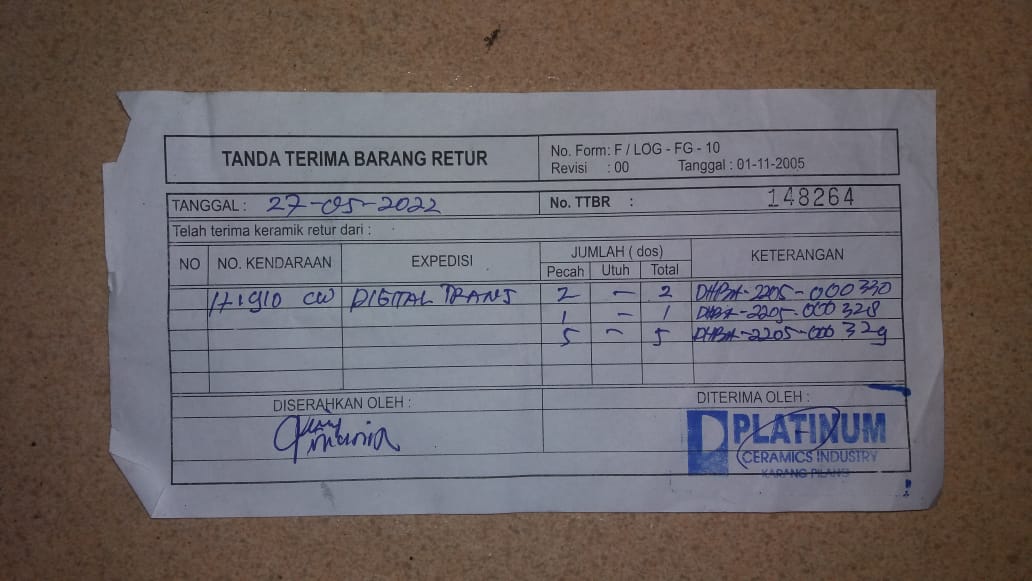 TANDA TERIMA BARANG RETUR
No. Form: F / LOG - FG - 10
Revisi : 00 Tanggal : 01-11-2005
TANGGAL : 27-05-2022 No. TTBR : 148264
Telah terima keramik retur dari :
NO NO. KENDARAAN EXPEDISI JUMLAH ( dos) KETERANGAN
Pecah Utuh Total
DIGITAL TRANS 2 - 2 DHBA-2205-000330
1 - 1 DHBA-2205-000328
5 - 5 DHBA-2205-000329
DISERAHKAN OLEH : DITERIMA OLEH :
PLATINUM
CERAMICS INDUSTRY
KARANG PILANG